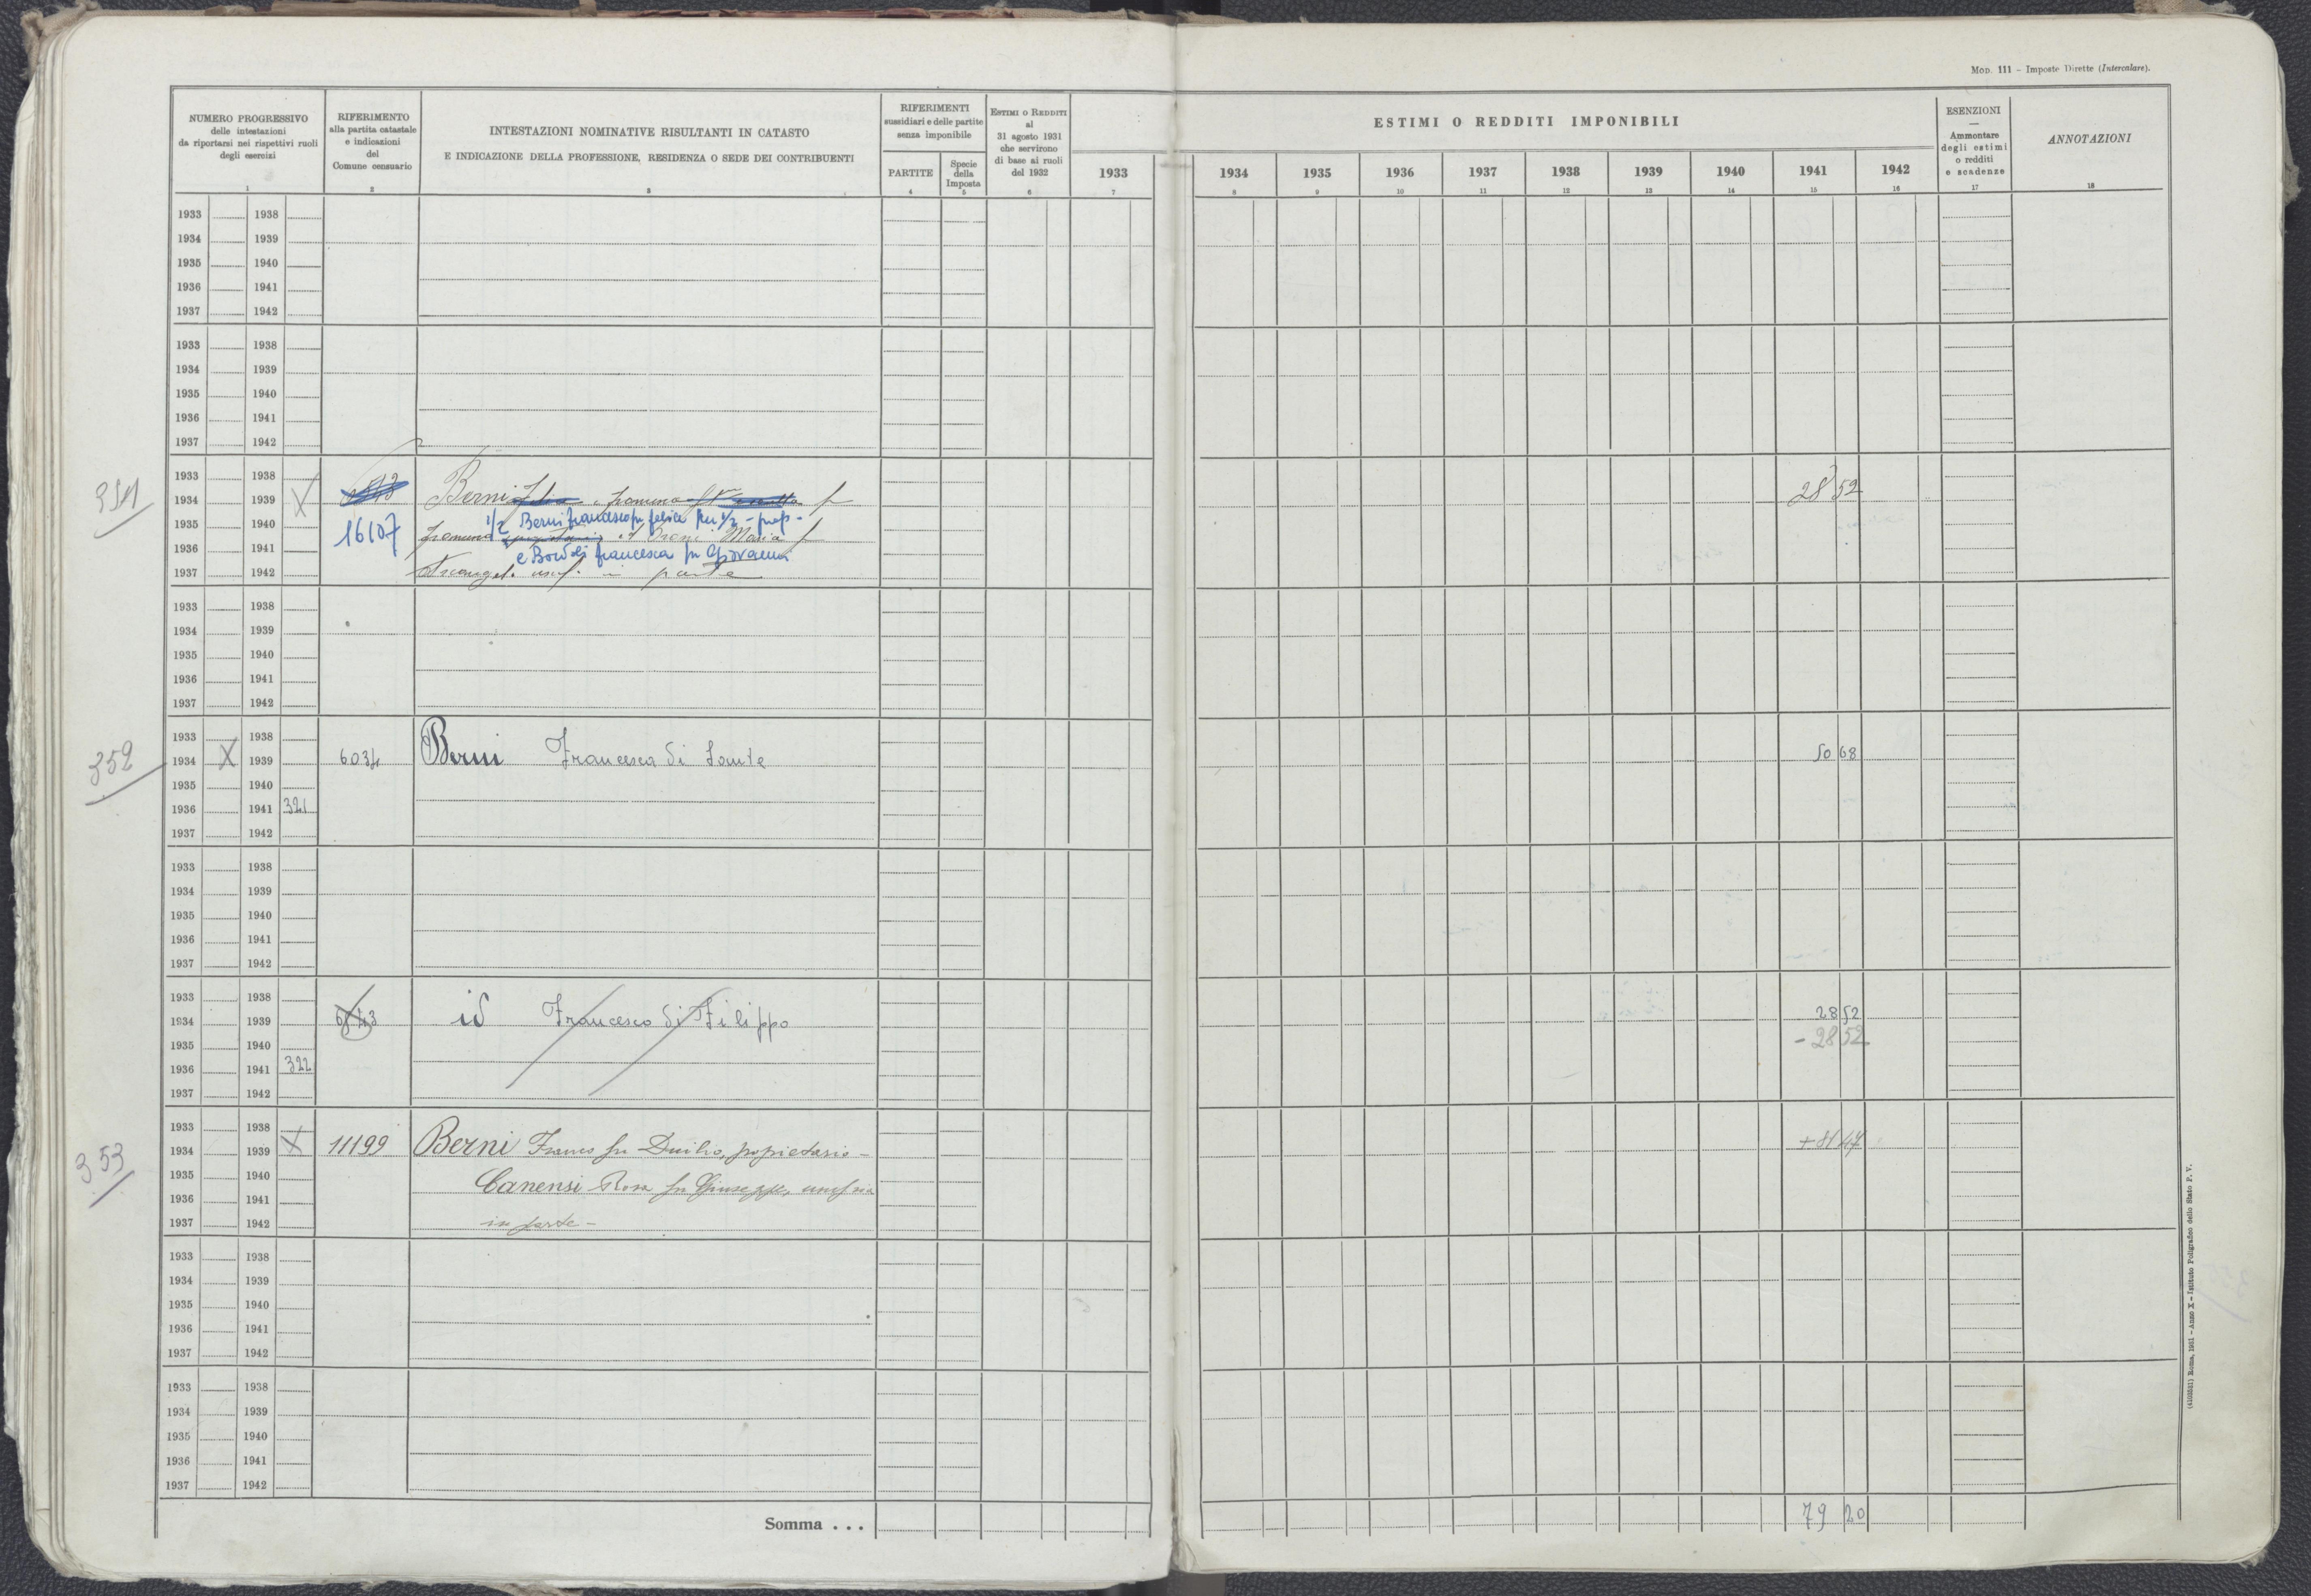 MOD. 111 - Imposte Dirette (Intercalare).
NUMERO PROGRESSIVO
delle intestazioni
da riportarsi nei rispettivi ruoli
degli esercizi
1
RIFERIMENTO
alla partita catastale
e indicazioni
del
Comune censuario
2
INTESTAZIONI NOMINATIVE RISULTANTI IN CATASTO
E INDICAZIONE DELLA PROFESSIONE, RESIDENZA O SEDE DEI CONTRIBUENTI
3
RIFERIMENTI
sussidiari e delle partite
senza imponibile
PARTITE
4
Specie
della
Imposta
5
ESTIMI O REDDITI
al
31 agosto 1931
che servirono
di base ai ruoli
del 1932
6
ESTIMI O REDDITI IMPONIBILI
1933 1934 1935 1936 1937 1938 1939 1940 1941 1942
7 8 9 10 11 12 13 14 15 16
ESENZIONI
—
Ammontare
degli estimi
o redditi
e scadenze
17
ANNOTAZIONI
18
1933 1938
1934 1939
1935 1940
1936 1941
1937 1942
1933 1938
1934 1939
1935 1940
1936 1941
1937 1942
1933 1938
351 1934 1939 X Berni 28 52
1935 1940 1/2 Berni Francesco fu Felice per 1/2 - prop -
16107
1936 1941 Maria f
e Bordoli Francesca fu Giovanni
1937 1942 usuf. in parte
1933 1938
1934 1939
1935 1940
1936 1941
1937 1942
1933 1938
352 1934 X 1939 6034 Berni Francesca di Sante 50 68
1935 1940
1936 1941 321
1937 1942
1933 1938
1934 1939
1935 1940
1936 1941
1937 1942
1933 1938
1934 1939 6843 id Francesco di Filippo 28 52
1935 1940 - 28 52
1936 1941 322
1937 1942
1933 1938
353 1934 1939 X 11199 Berni Franco fu Duilio, propietario - + 81 47
1935 1940
1936 1941 Canensi Rosa fu Giuseppe, usufria
1937 1942 in parte -
1933 1938
1934 1939
1935 1940
1936 1941
1937 1942
1933 1938
1934 1939
1935 1940
1936 1941
1937 1942
Somma . . . 79 20
Roma, 1931 - Anno X - Istituto Poligrafico dello Stato P. V.